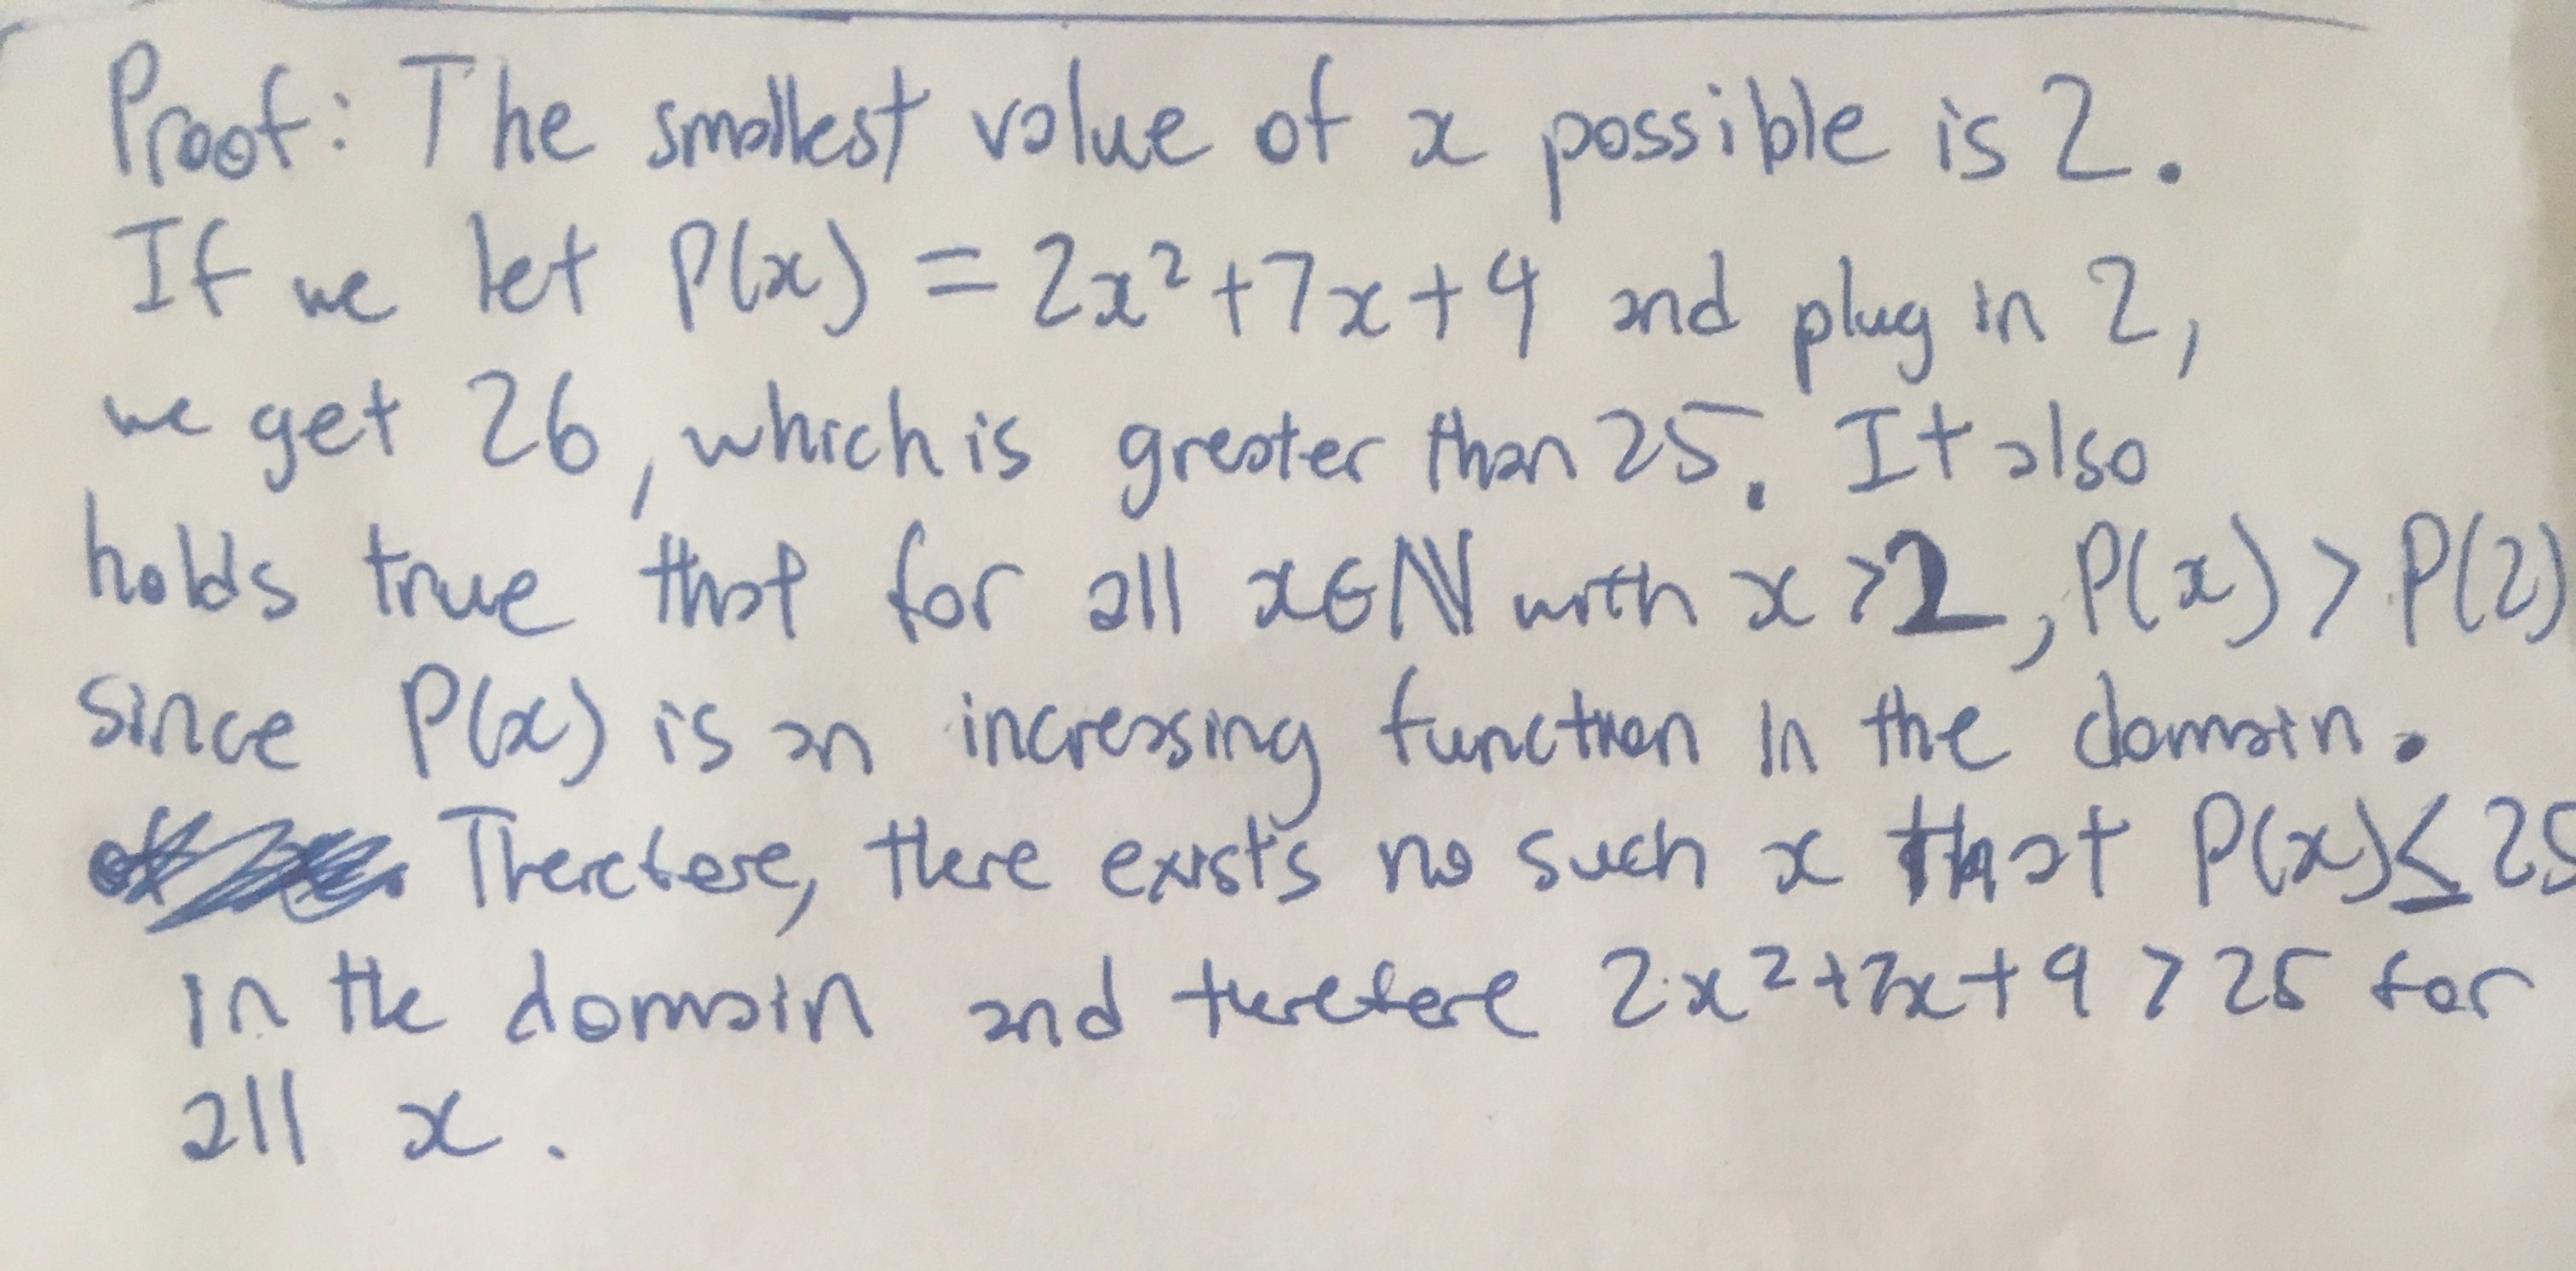 Proof: The smallest value of x possible is 2.
If we let P(x) = 2x²+7x+4 and plug in 2,
we get 26, which is greater than 25. It also
holds true that for all x∈ℕ with x>2, P(x) > P(2)
since P(x) is an increasing function in the domain.
Therefore, there exists no such x that P(x)≤25
in the domain and therefore 2x²+7x+4 > 25 for
all x.